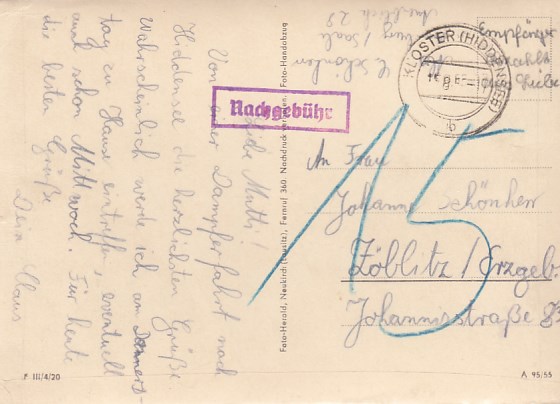 Liebe Mutti!
Von einer Dampferfahrt nach
Hiddensee die herzlichsten Grüße.
Wahrscheinlich werde ich am Donners-
tag zu Hause eintreffen, eventuell
auch schon Mittwoch. Für heute
die besten Grüße
Dein Claus
C. Schönherr
Empfänger
bezahlt
KLOSTER (HIDDENSEE)
b
Nachgebühr
15
An Frau
Johanne Schönherr
Zöblitz / Erzgeb.
Johannisstraße
Foto-Herold, Neukirch (Lausitz), Fernruf 360. Nachdruck verboten. Foto-Handabzug
P III/4/20
A 95/55